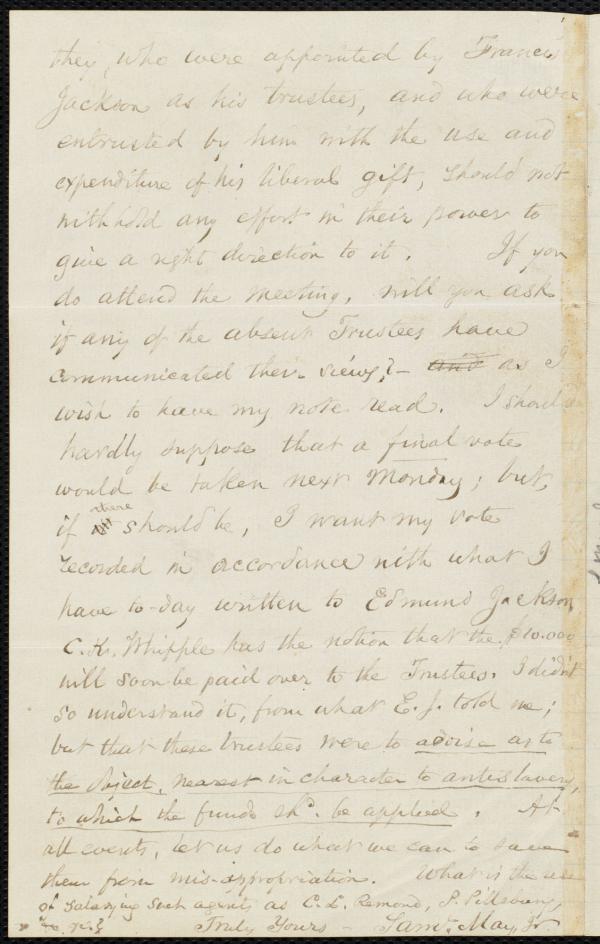 they, who were appointed by Francis
Jackson as his trustees, and who were
entrusted by him with the use and
expenditure of his liberal gift, should not
withhold any effort in their power to
give a right direction to it. If you
do attend the meeting, will you ask
if any of the absent Trustees have
communicated their views?— and as I
wish to have my note read. I should
hardly suppose that a final vote
would be taken next Monday; but,
if there should be, I want my vote
recorded in accordance with what I
have to-day written to Edmund Jackson
C. K. Whipple has the notion that the $10.000
will soon be paid over to the Trustees. I didn't
so understand it, from what E. J. told me;
but that these trustees were to advise as to
the object, nearest in character to antislavery,
to which the funds shd. be applied. At
all events, let us do what we can to save
them from mis-appropriation. What is the use
of salarying such agents as C. L. Remond, P. Pillsbury,
&c. &c.?
Truly Yours — Saml. May, Jr.